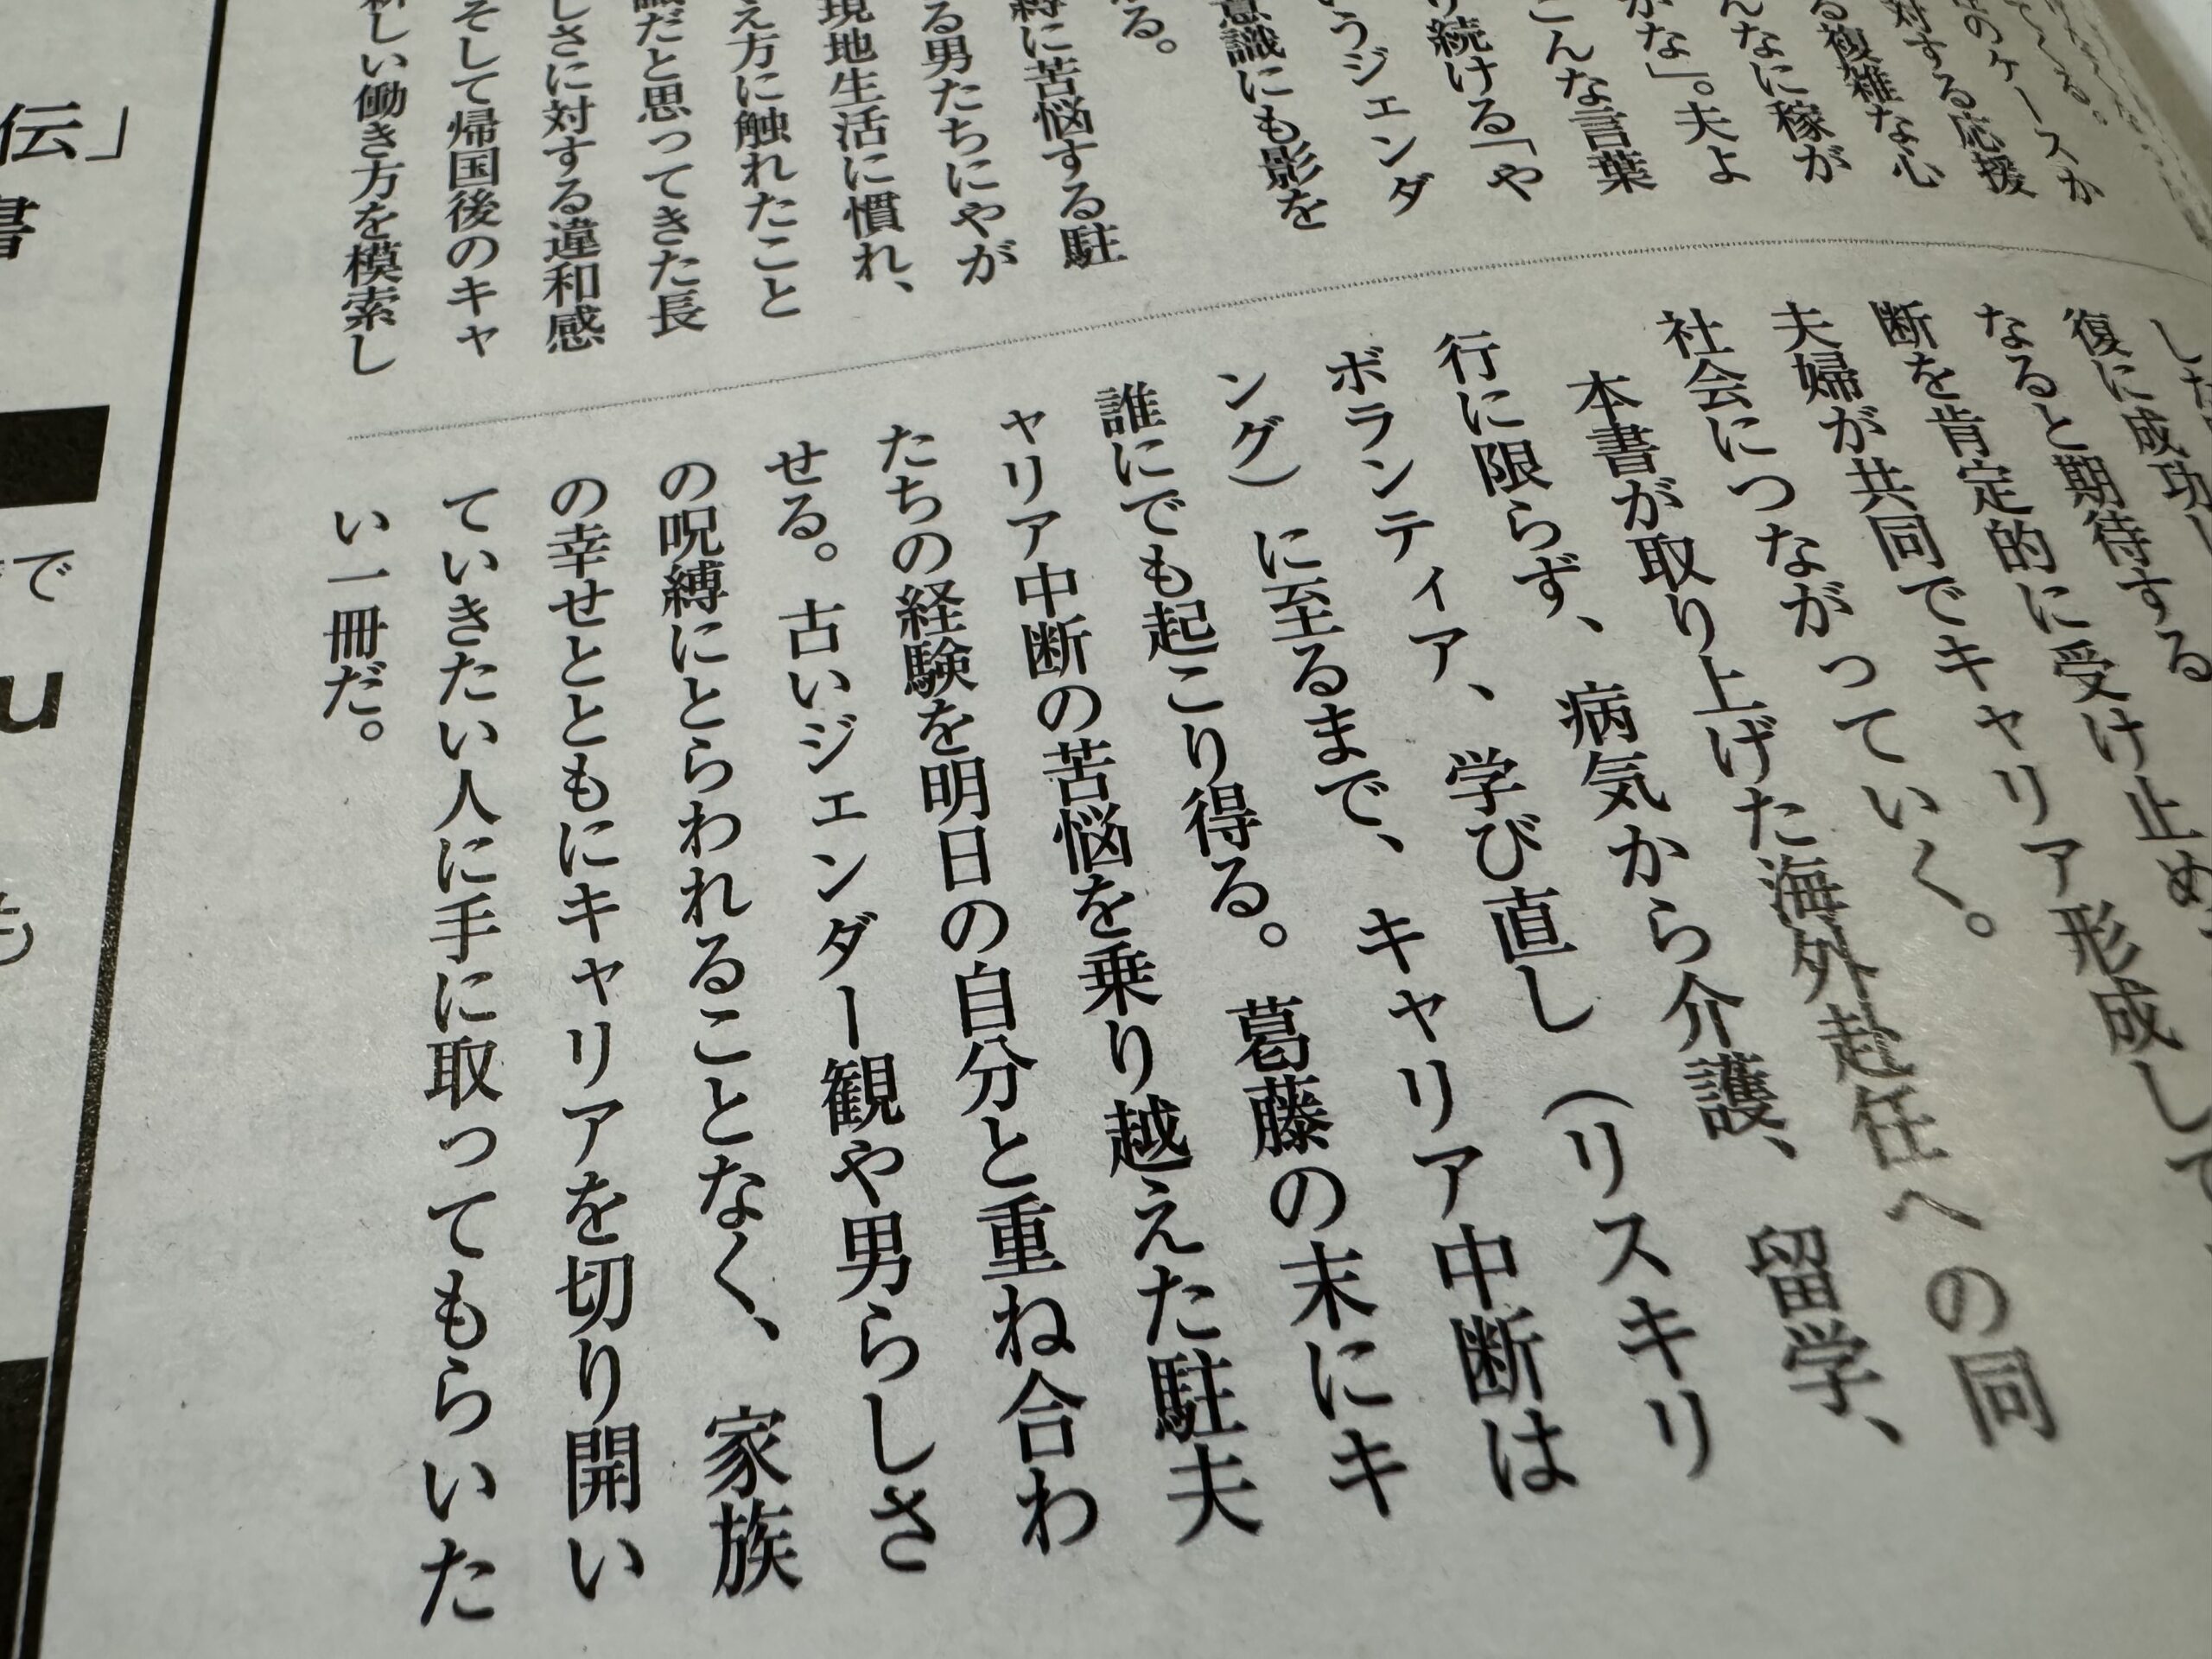 てくる。
のケースか
対する応援
る複雑な心
んなに稼が
かな」。夫よ
こんな言葉
り続ける「や
いうジェンダ
意識にも影を
る。
縛に苦悩する駐
る男たちにやが
現地生活に慣れ、
え方に触れたこと
識だと思ってきた長
しさに対する違和感
そして帰国後のキャ
新しい働き方を模索し
復に成功し
なると期待する
断を肯定的に受け止め
夫婦が共同でキャリア形成して
社会につながっていく。
本書が取り上げた海外赴任への同
行に限らず、病気から介護、留学、
ボランティア、学び直し（リスキリ
ング）に至るまで、キャリア中断は
誰にでも起こり得る。葛藤の末にキ
ャリア中断の苦悩を乗り越えた駐夫
たちの経験を明日の自分と重ね合わ
せる。古いジェンダー観や男らしさ
の呪縛にとらわれることなく、家族
の幸せとともにキャリアを切り開い
ていきたい人に手に取ってもらいた
い一冊だ。
伝」
書
で
u
も